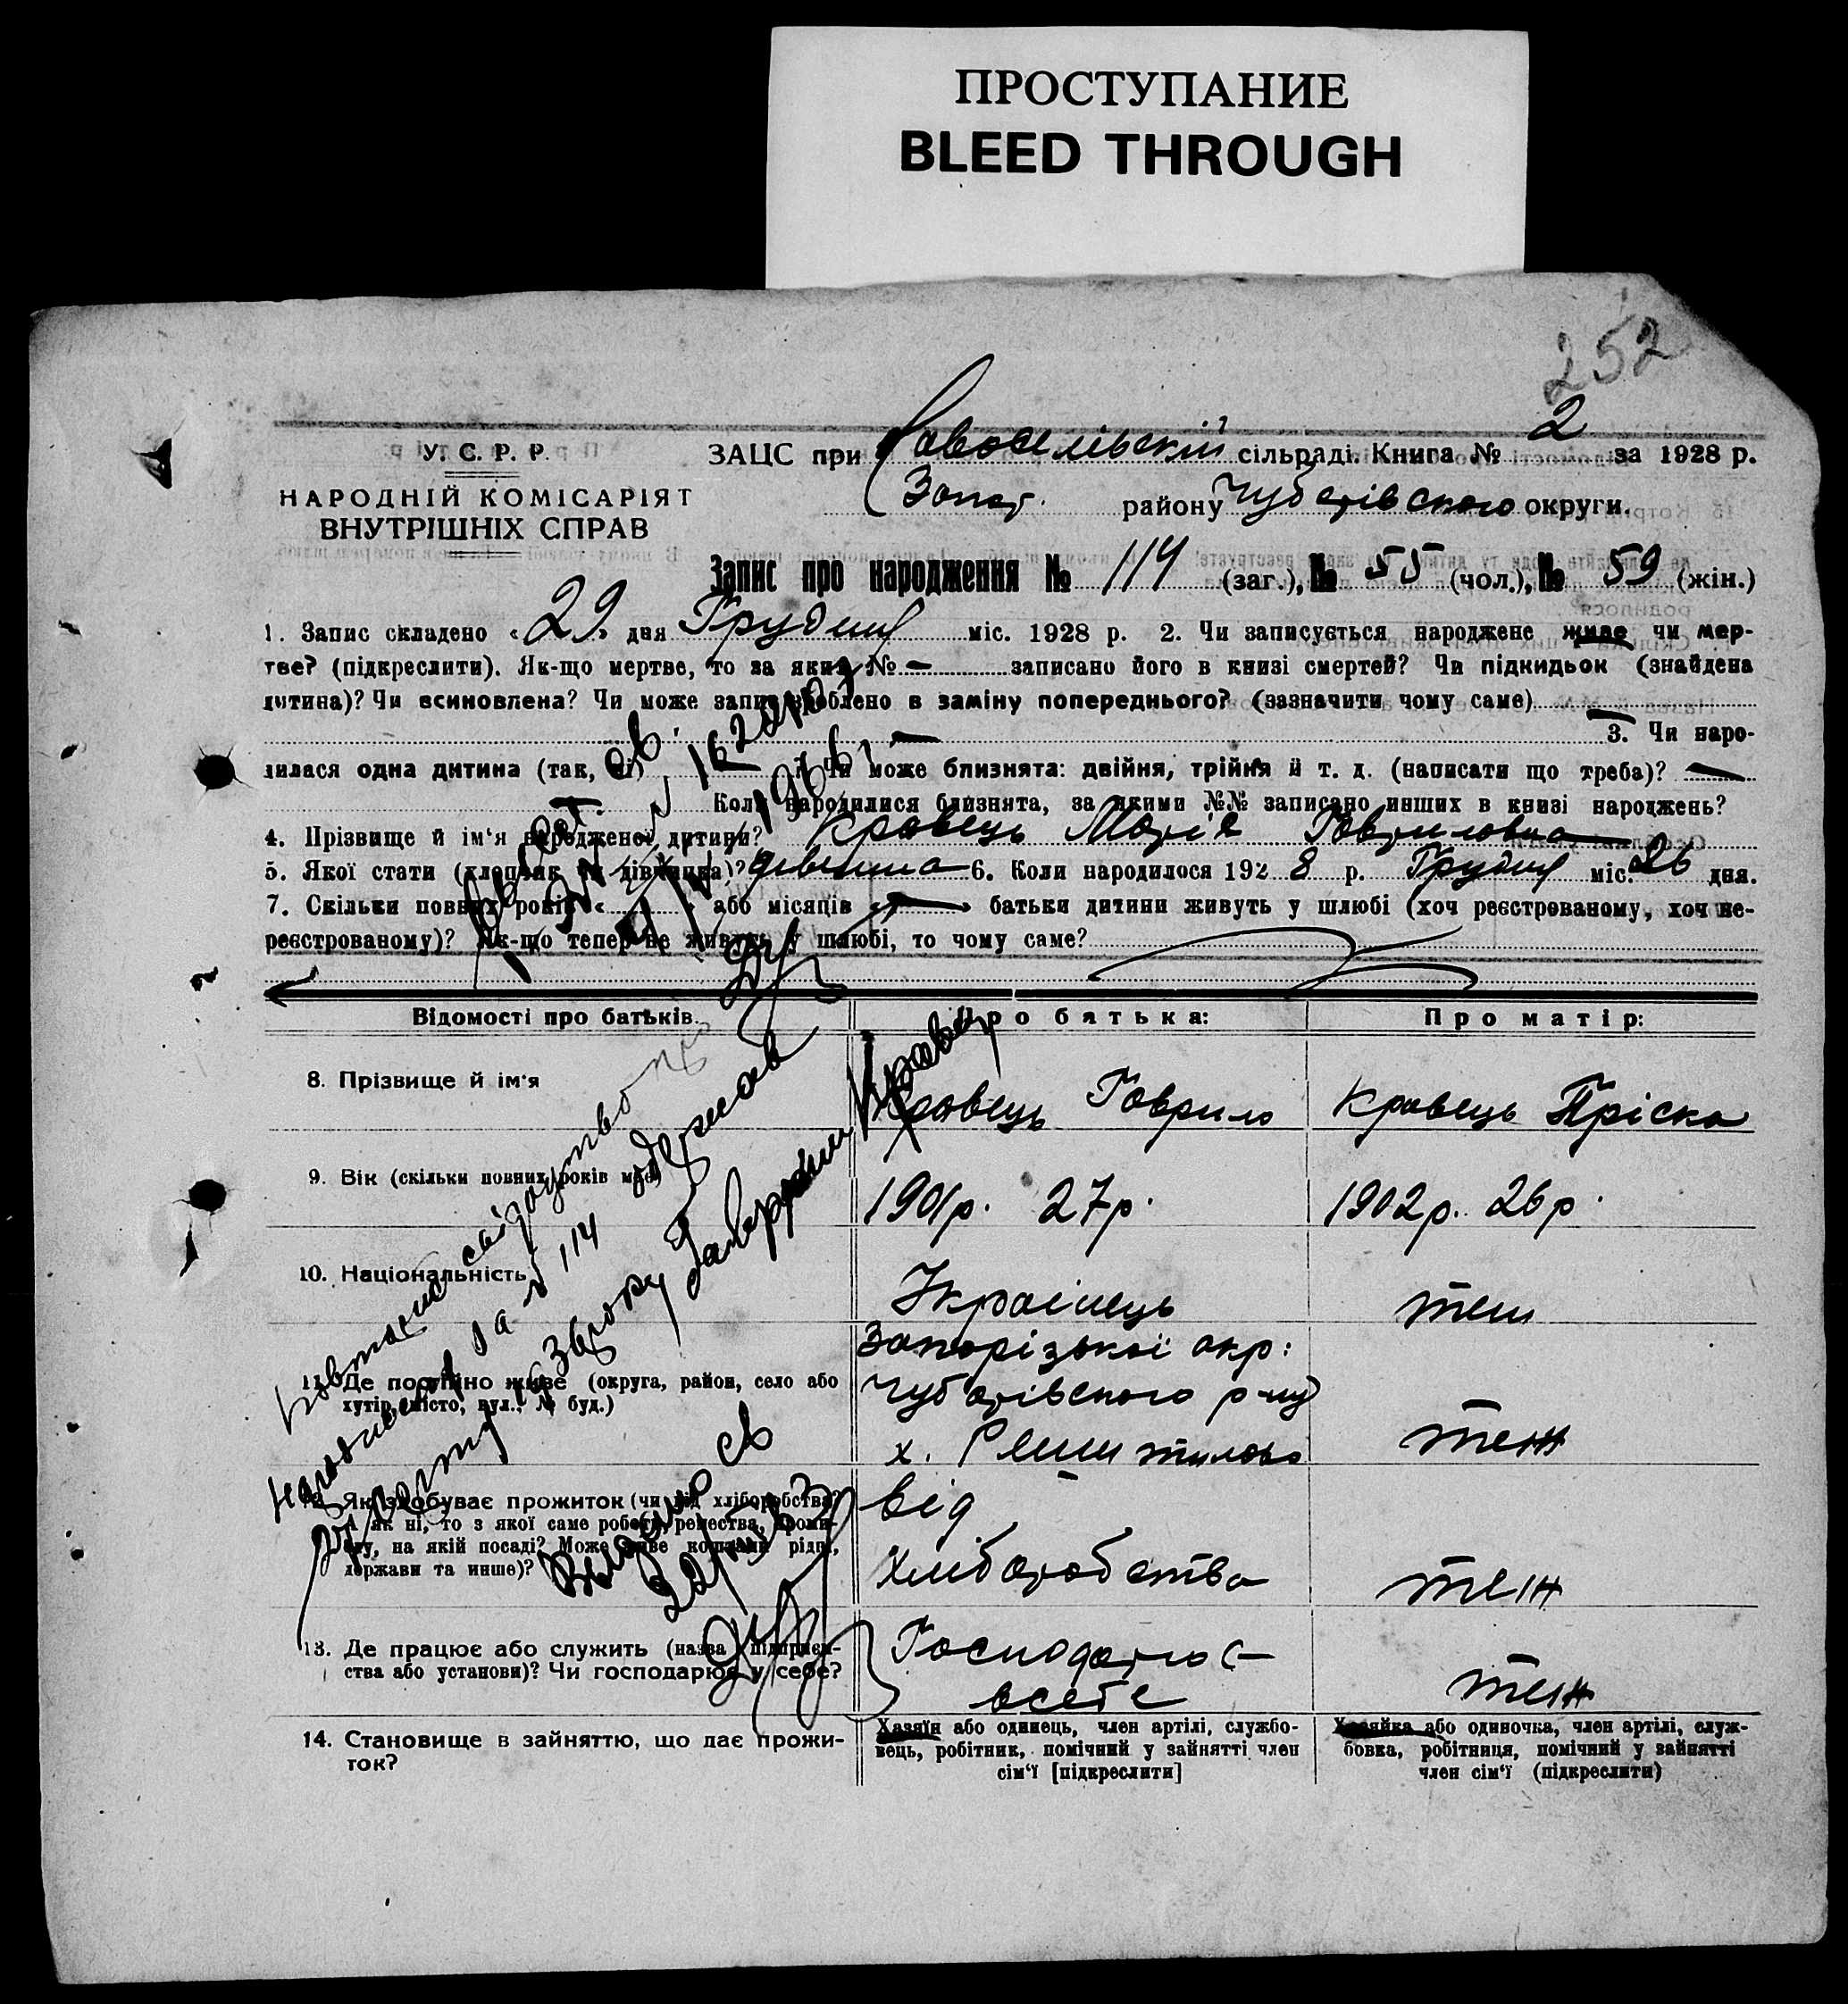 ПРОСТУПАНИЕ
BLEED THROUGH
252
У. С. Р. Р.
НАРОДНІЙ КОМІСАРІЯТ
ВНУТРІШНІХ СПРАВ
ЗАЦС при Новоселівській сільраді. Книга № 2 за 1928 р.
Запор. району Чубарівського округи.
Запис про народження № 114 (заг.), № 55 (чол.), № 59 (жін.)
1. Запис складено «29» дня Грудня міс. 1928 р. 2. Чи записується народжене живе чи мер-
тве? (підкреслити). Як-що мертве, то за яким № — записано його в книзі смертей? Чи підкидьок (знайдена
дитина)? Чи всиновлена? Чи може запис зроблено в заміну попереднього? (зазначити чому саме)
— 3. Чи наро-
дилася одна дитина (так, ні) Чи може близнята: двійня, трійня й т. д. (написати що треба)? —
Коли народилися близнята, за якими №№ записано инших в книзі народжень?
4. Прізвище й ім'я народженої дитини? Кравець Марія Гавриловна
5. Якої стати (хлопчик чи дівчинка)? дівчина 6. Коли народилося 1928 р. Грудня міс. 26 дня.
7. Скільки повних років « » або місяців « — » батьки дитини живуть у шлюбі (хоч реєстрованому, хоч не-
реєстрованому)? Як-що тепер не живуть у шлюбі, то чому саме?
Відомості про батьків. Про батька: Про матір:
8. Прізвище й ім'я Кравець Гаврило Кравець Пріска
9. Вік (скільки повних років має) 1901р. 27р. 1902р. 26р.
10. Національність Українець теж
Запорізької окр:
11. Де постійно живе (округа, район, село або Чубарівського р-ну
хутір, місто, вул., № буд.)
х. теж
12. Як здобуває прожиток (чи від хліборобства? від
А як ні, то з якої саме роботи, ремества, проми-
слу, на якій посаді? Може живе коштами рідні,
держави та инше)? Хліборобства теж
13. Де працює або служить (назва підприєм- Господарює
ства або установи)? Чи господарює у себе? всебе теж
14. Становище в зайняттю, що дає прожи-
ток?
Хазяїн або одинець, член артілі, службо-
вець, робітник, помічний у зайнятті член
сім'ї [підкреслити]
Хазяйка або одиночка, член артілі, служ-
бовка, робітниця, помічний у зайнятті
член сім'ї (підкреслити)
Повторне свідоцтво про
народження за № 114 одержав
Гаврилович Кравець